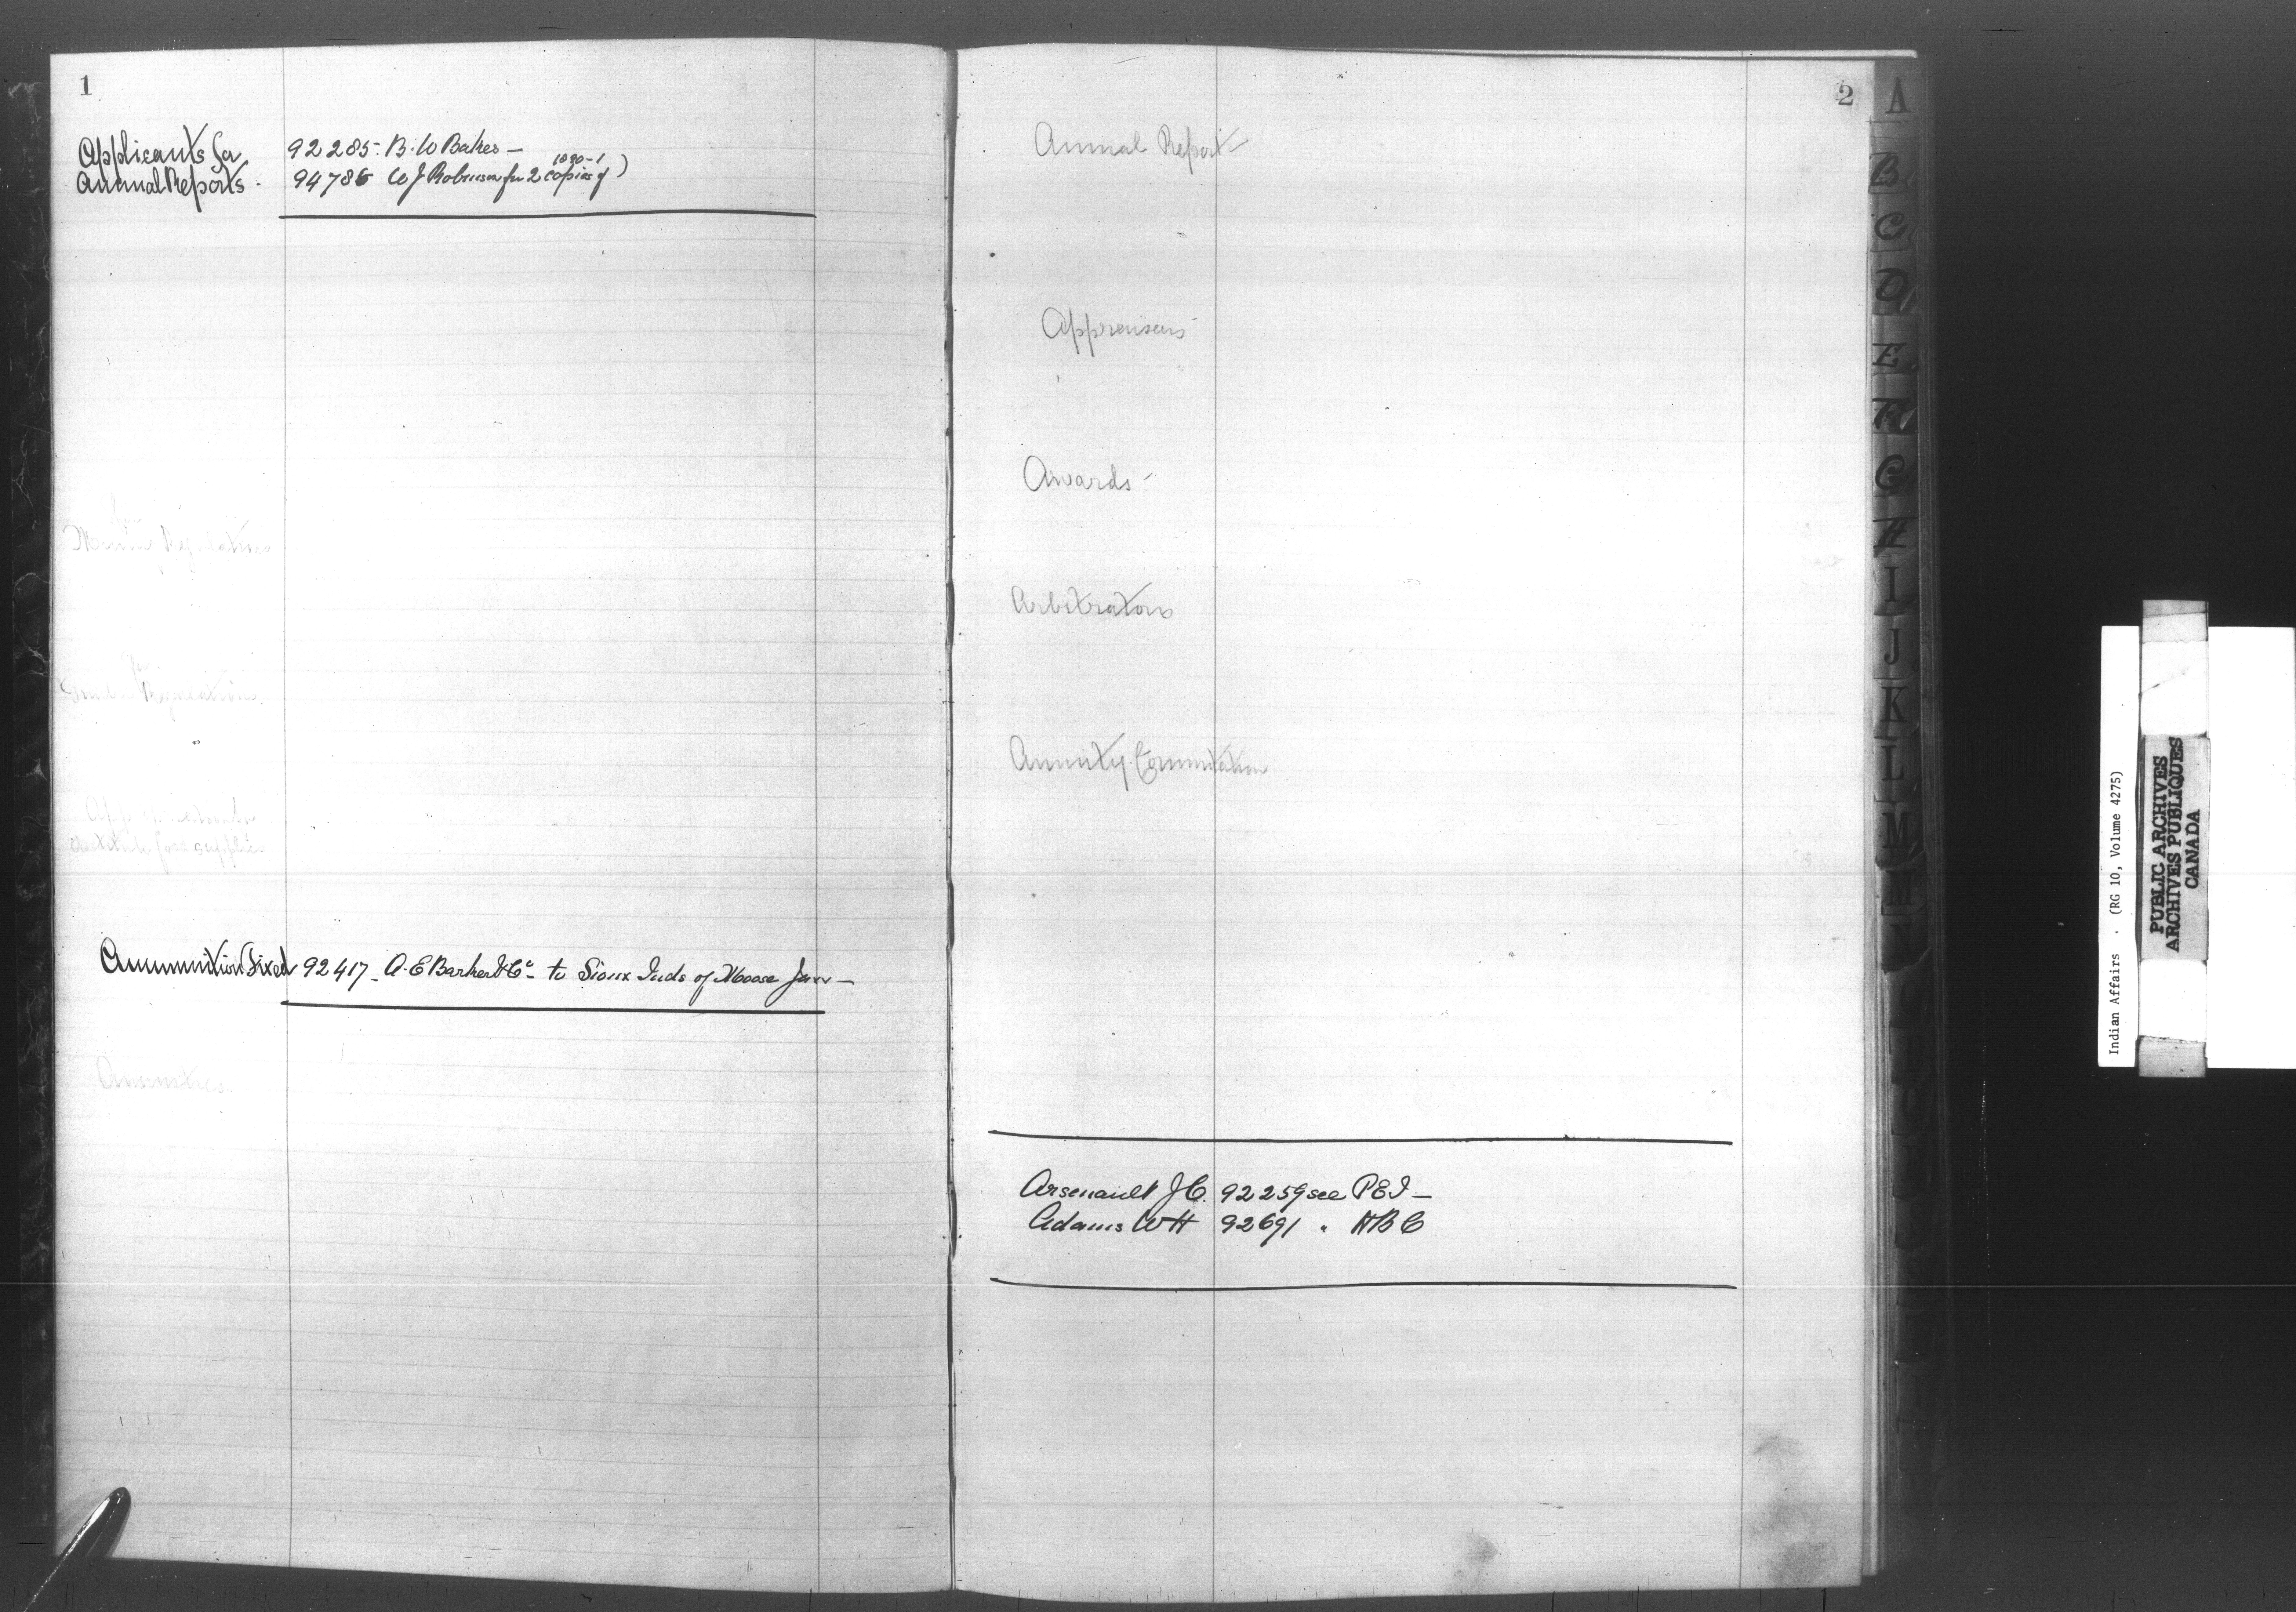 1
Applicants for 92285. B. W Baker —
Annual Reports. 94786 W J Robinson for 2 copies of 1890-1)
Regulations
Regulations
for supplies
Ammunition Fixed 92417 — A. E Barker & Co — to Sioux Inds of Moose Jaw —
2
Annual Report
Appraisers
Awards —
Arbitrators
Annuity Commutation
Arsenault J C. 92259 see P E I —
Adams W H 92691 " H B C
A
B
C
D
E
F
G
H
I
J
K
L
M
Indian Affairs . (RG 10, Volume 4275)
PUBLIC ARCHIVES
ARCHIVES PUBLIQUES
CANADA